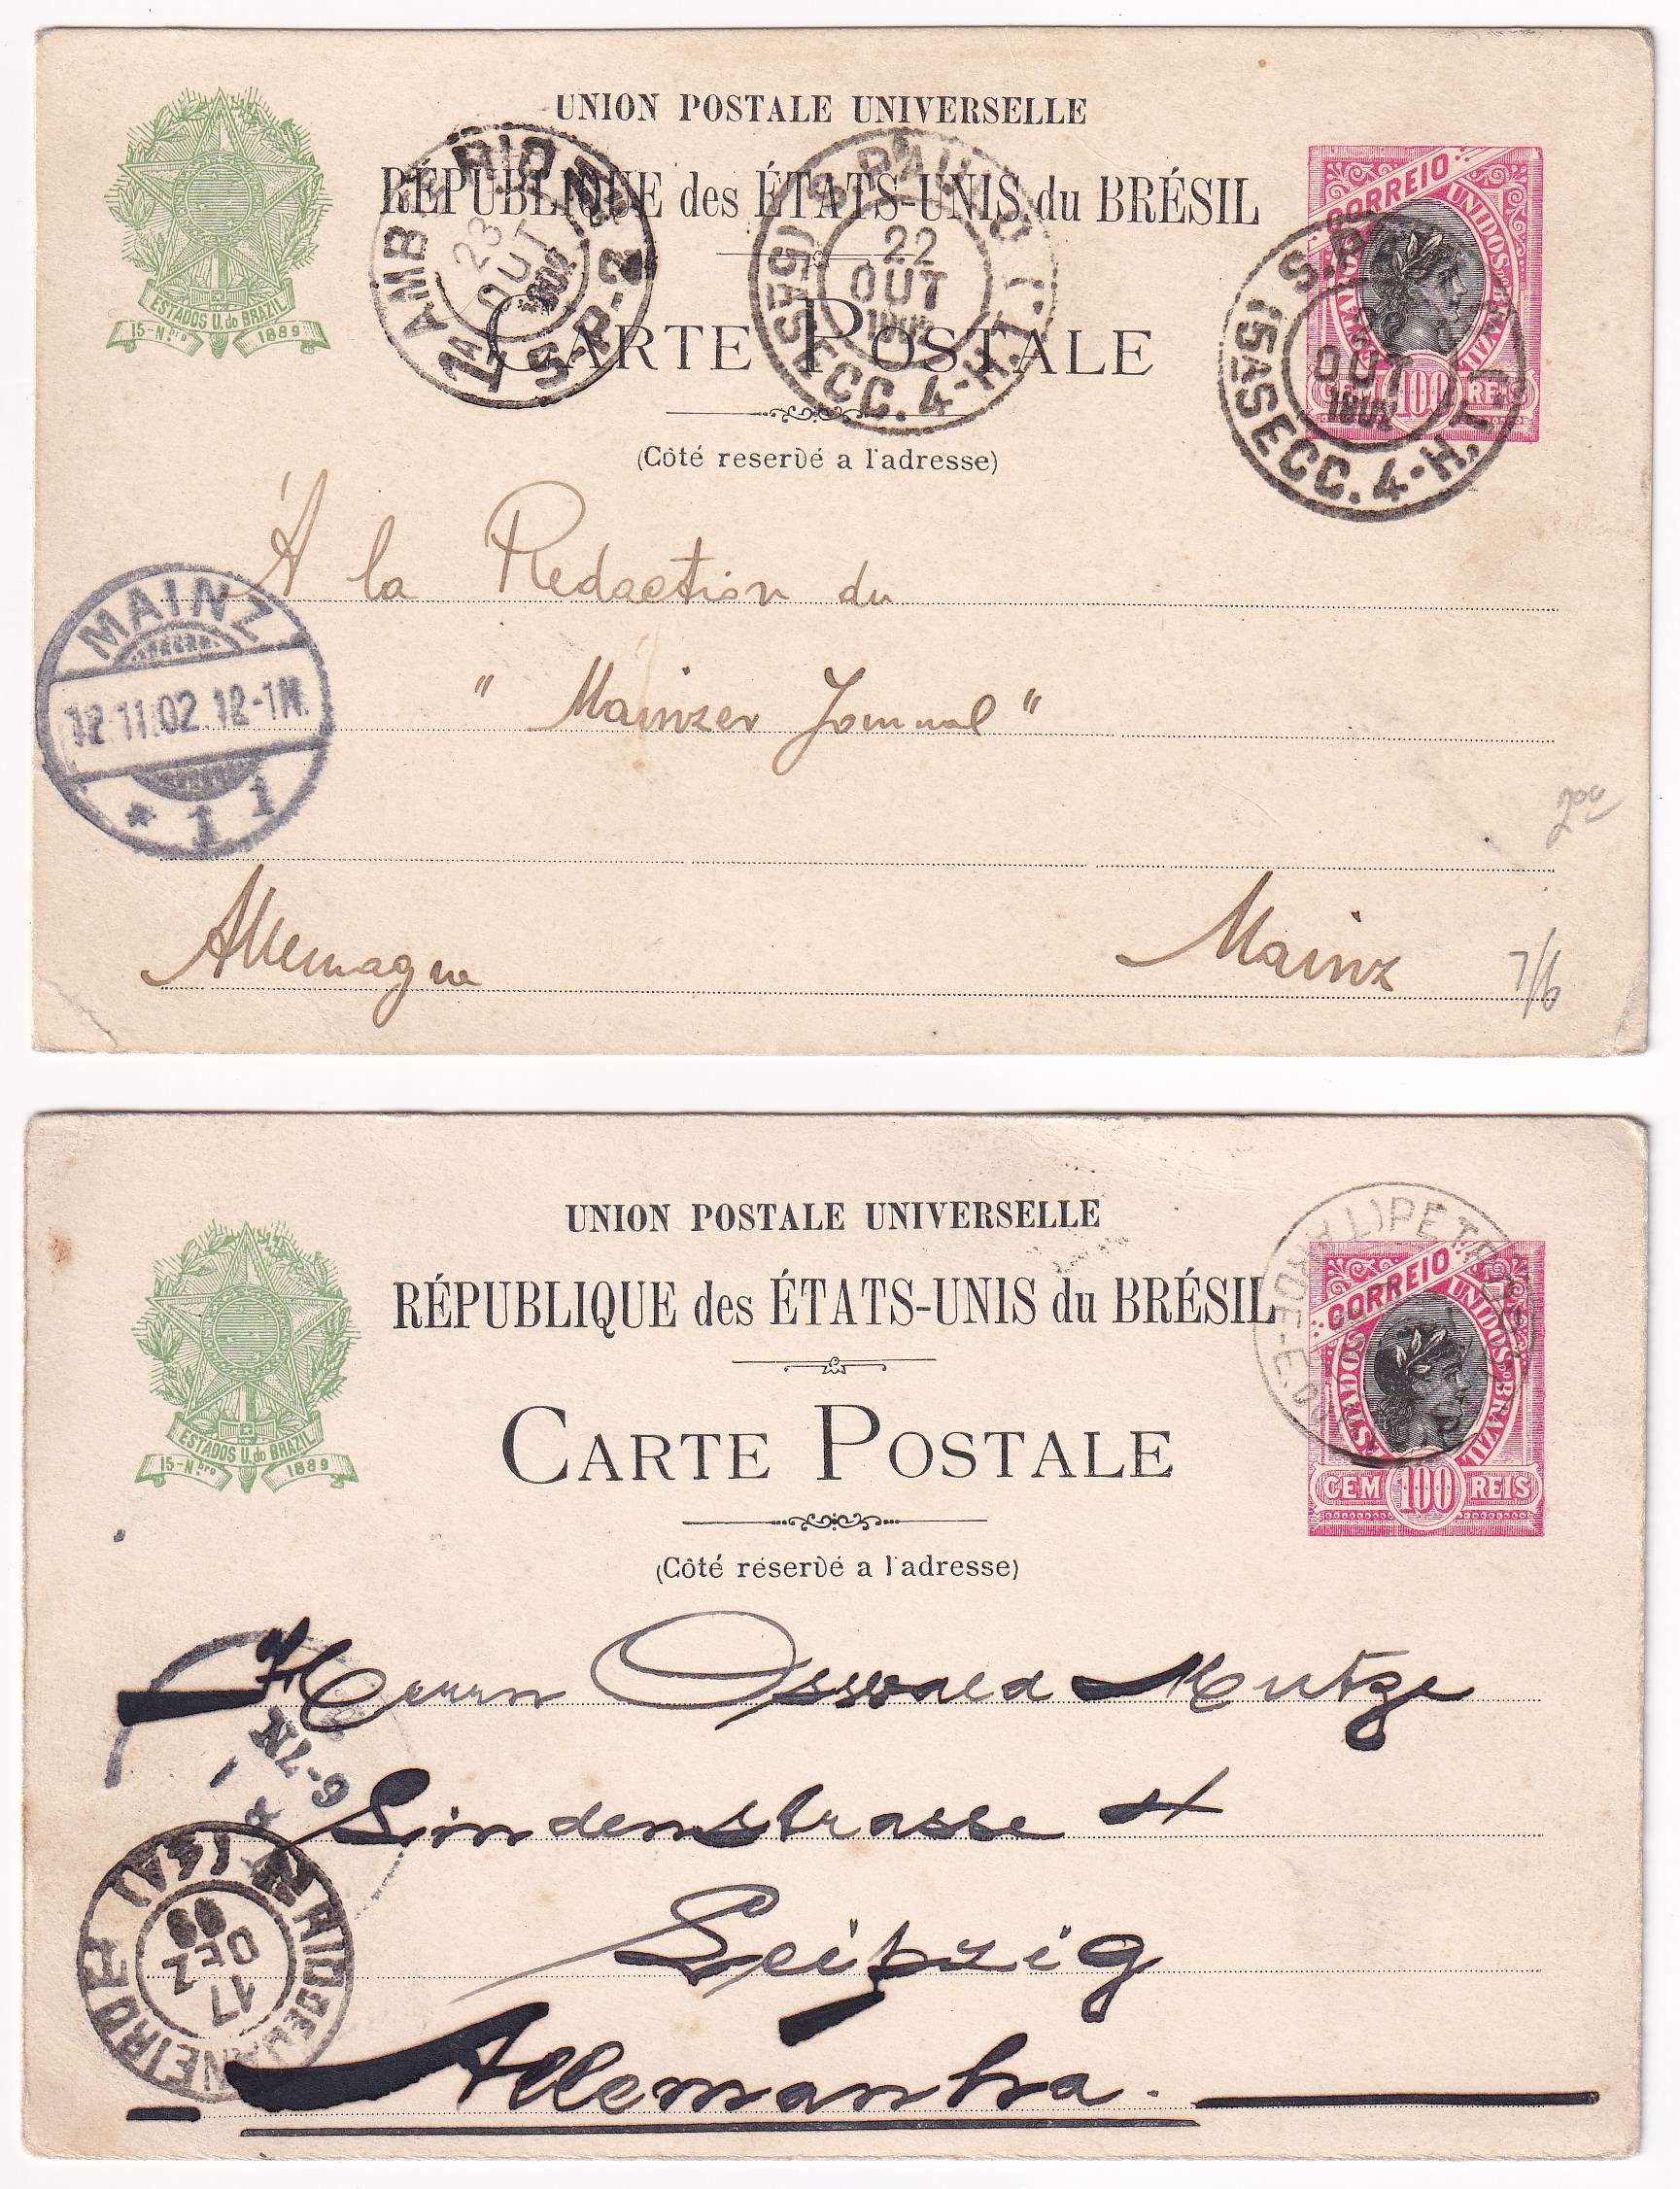 UNION POSTALE UNIVERSELLE
RÉPUBLIQUE des ÉTATS-UNIS du BRÉSIL
CARTE POSTALE
(Côté reservé a l'adresse)
ESTADOS U. do BRAZIL
15-N.bro 1889
CORREIO
CEM 100 REIS
AMB RIO
23
OUT
S-P-2
S. PAULO
22
OUT
(5ASECC. 4-H.T.)
S.P
OUT
1902
(5ASECC. 4-H.T.)
À la Redaction du
"Mainzer Journal"
MAINZ
12.11.02.12-1N.
* 1 1
Allemagne Mainz
7/6
UNION POSTALE UNIVERSELLE
RÉPUBLIQUE des ÉTATS-UNIS du BRÉSIL
CARTE POSTALE
(Côté réservé a l'adresse)
ESTADOS U. do BRAZIL
15-N.bro 1889
CORREIO
ESTADOS UNIDOS do BRAZIL
CEM 100 REIS
Herrn Osswald Mutze
6-7N
Lindenstrasse 4
Leipzig
RIO DE JANEIRO
17
DEZ
99
Allemanha.